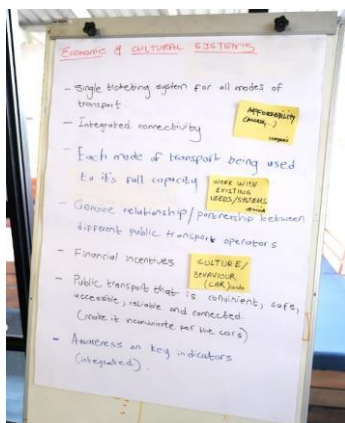 ECONOMIC & CULTURAL SYSTEMS
- Single ticketing system for all modes of
transport.
- Integrated connectivity
AFFORDABILITY
- Each mode of transport being used
to it's full capacity
WORK WITH
EXISTING
NEEDS/SYSTEMS
- Genuine relationship/partnership between
different public transport operators
- Financial incentives
CULTURE/
BEHAVIOUR
(CAR)
- Public transport that is convinient, safe,
accessible, reliable and connected.
(make it inconvinente for the cars)
- Awareness on key indicators
(integrated).